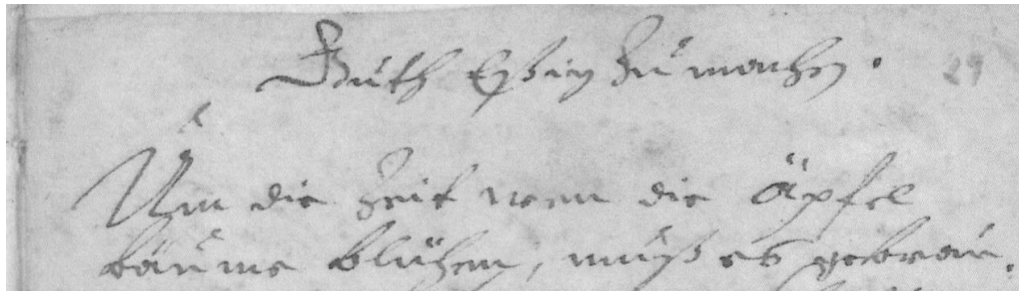 Guth Eßig Zu machen. 29
Um die Zeit wen die Äpfel
bäume blühen, muß es gebrau,